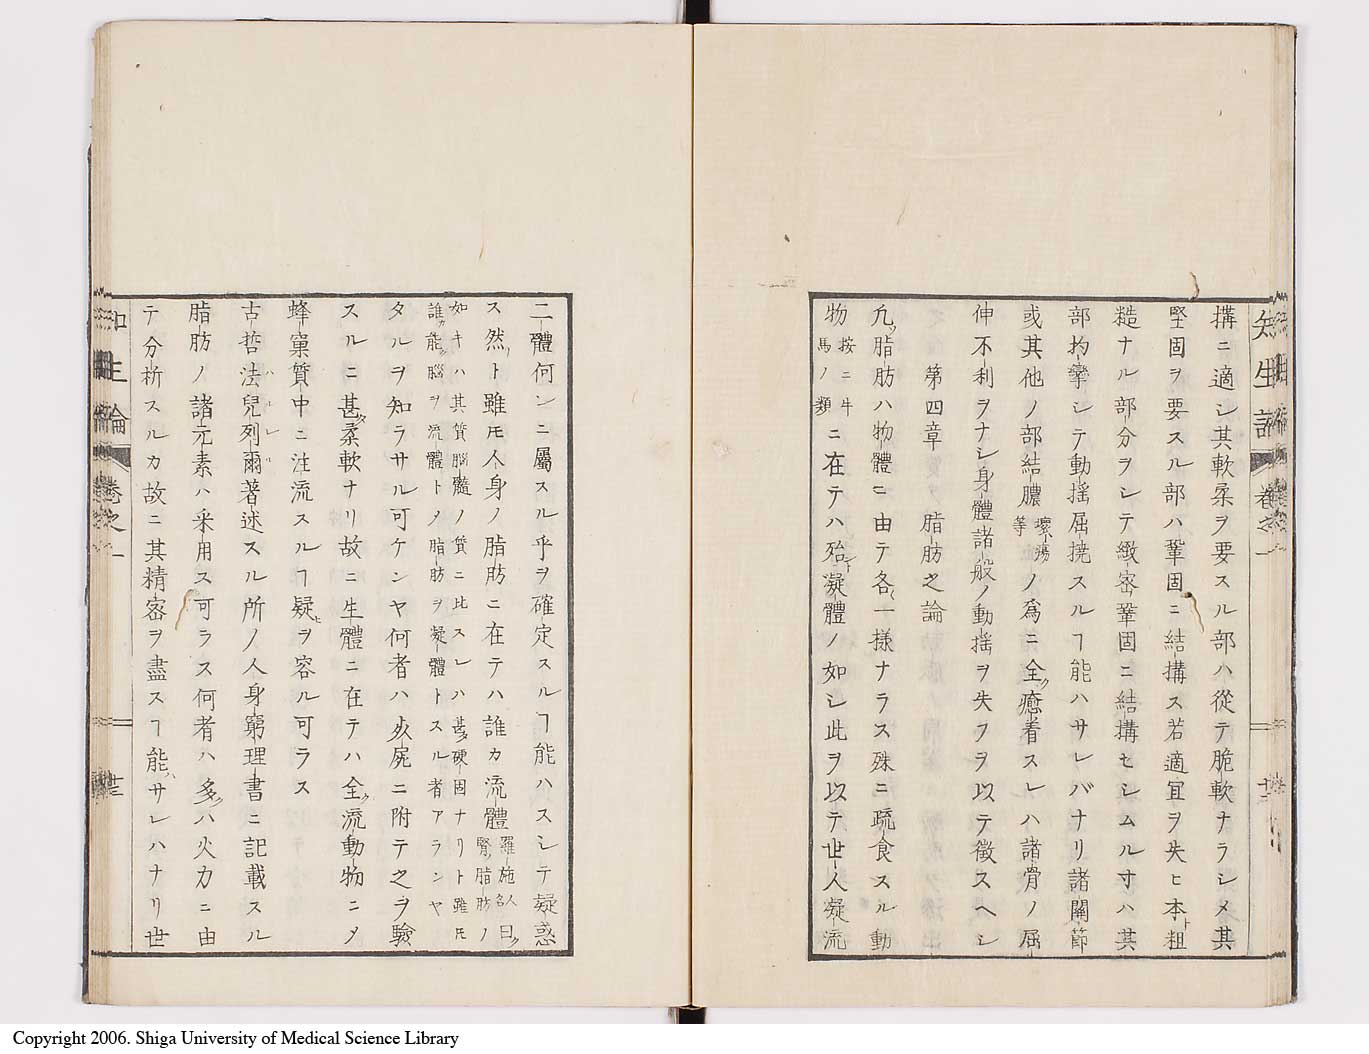 知生論 卷之一
構ニ適シ其軟柔ヲ要スル部ハ從テ脆軟ナラシメ其
堅固ヲ要スル部ハ鞏固ニ結構ス若適宜ヲ失ヒ本ト粗
糙ナル部分ヲシテ緻密鞏固ニ結構セシムル寸ハ其
部拘攣シテ動揺屈撓スルヿ能ハサレバナリ諸關節
或其他ノ部結膿壞瘍等ノ爲ニ全ク癒着スレハ諸骨ノ屈
伸不利ヲナシ身體諸般ノ動揺ヲ失フヲ以テ徴スヘシ
第四章 脂肪之論
凡ソ脂肪ハ物體ニ由テ各〱一様ナラス殊ニ疏食スル動
物按ニ牛馬ノ類ニ在テハ殆ント凝體ノ如シ此ヲ以テ世人凝流
二體何ンニ屬スル乎ヲ確定スルヿ能ハスシテ疑惑
ス然リト雖モ人身ノ脂肪ニ在テハ誰カ流體羅施氏曰ク腎脂肪ノ
如キハ其質腦髓ノ質ニ比スレハ甚タ硬固ナリト雖モ
誰カ能ク腦ヲ流體トメ脂肪ヲ凝體トスル者アランヤ
タルヲ知ラサル可ケンヤ何者ハ死屍ニ附テ之ヲ驗
スルニ甚タ柔軟ナリ故ニ生體ニ在テハ全ク流動物ニメ
蜂窠質中ニ注流スルヿ疑ヒヲ容ル可ラス
古哲法兒列爾ハルレル著述スル所ノ人身窮理書ニ記載スル
脂肪ノ諸元素ハ采用ス可ラス何者ハ多クハ火力ニ由
テ分析スルカ故ニ其精密ヲ盡スヿ能ハサレハナリ世
知生論 卷之一
Copyright 2006. Shiga University of Medical Science Library